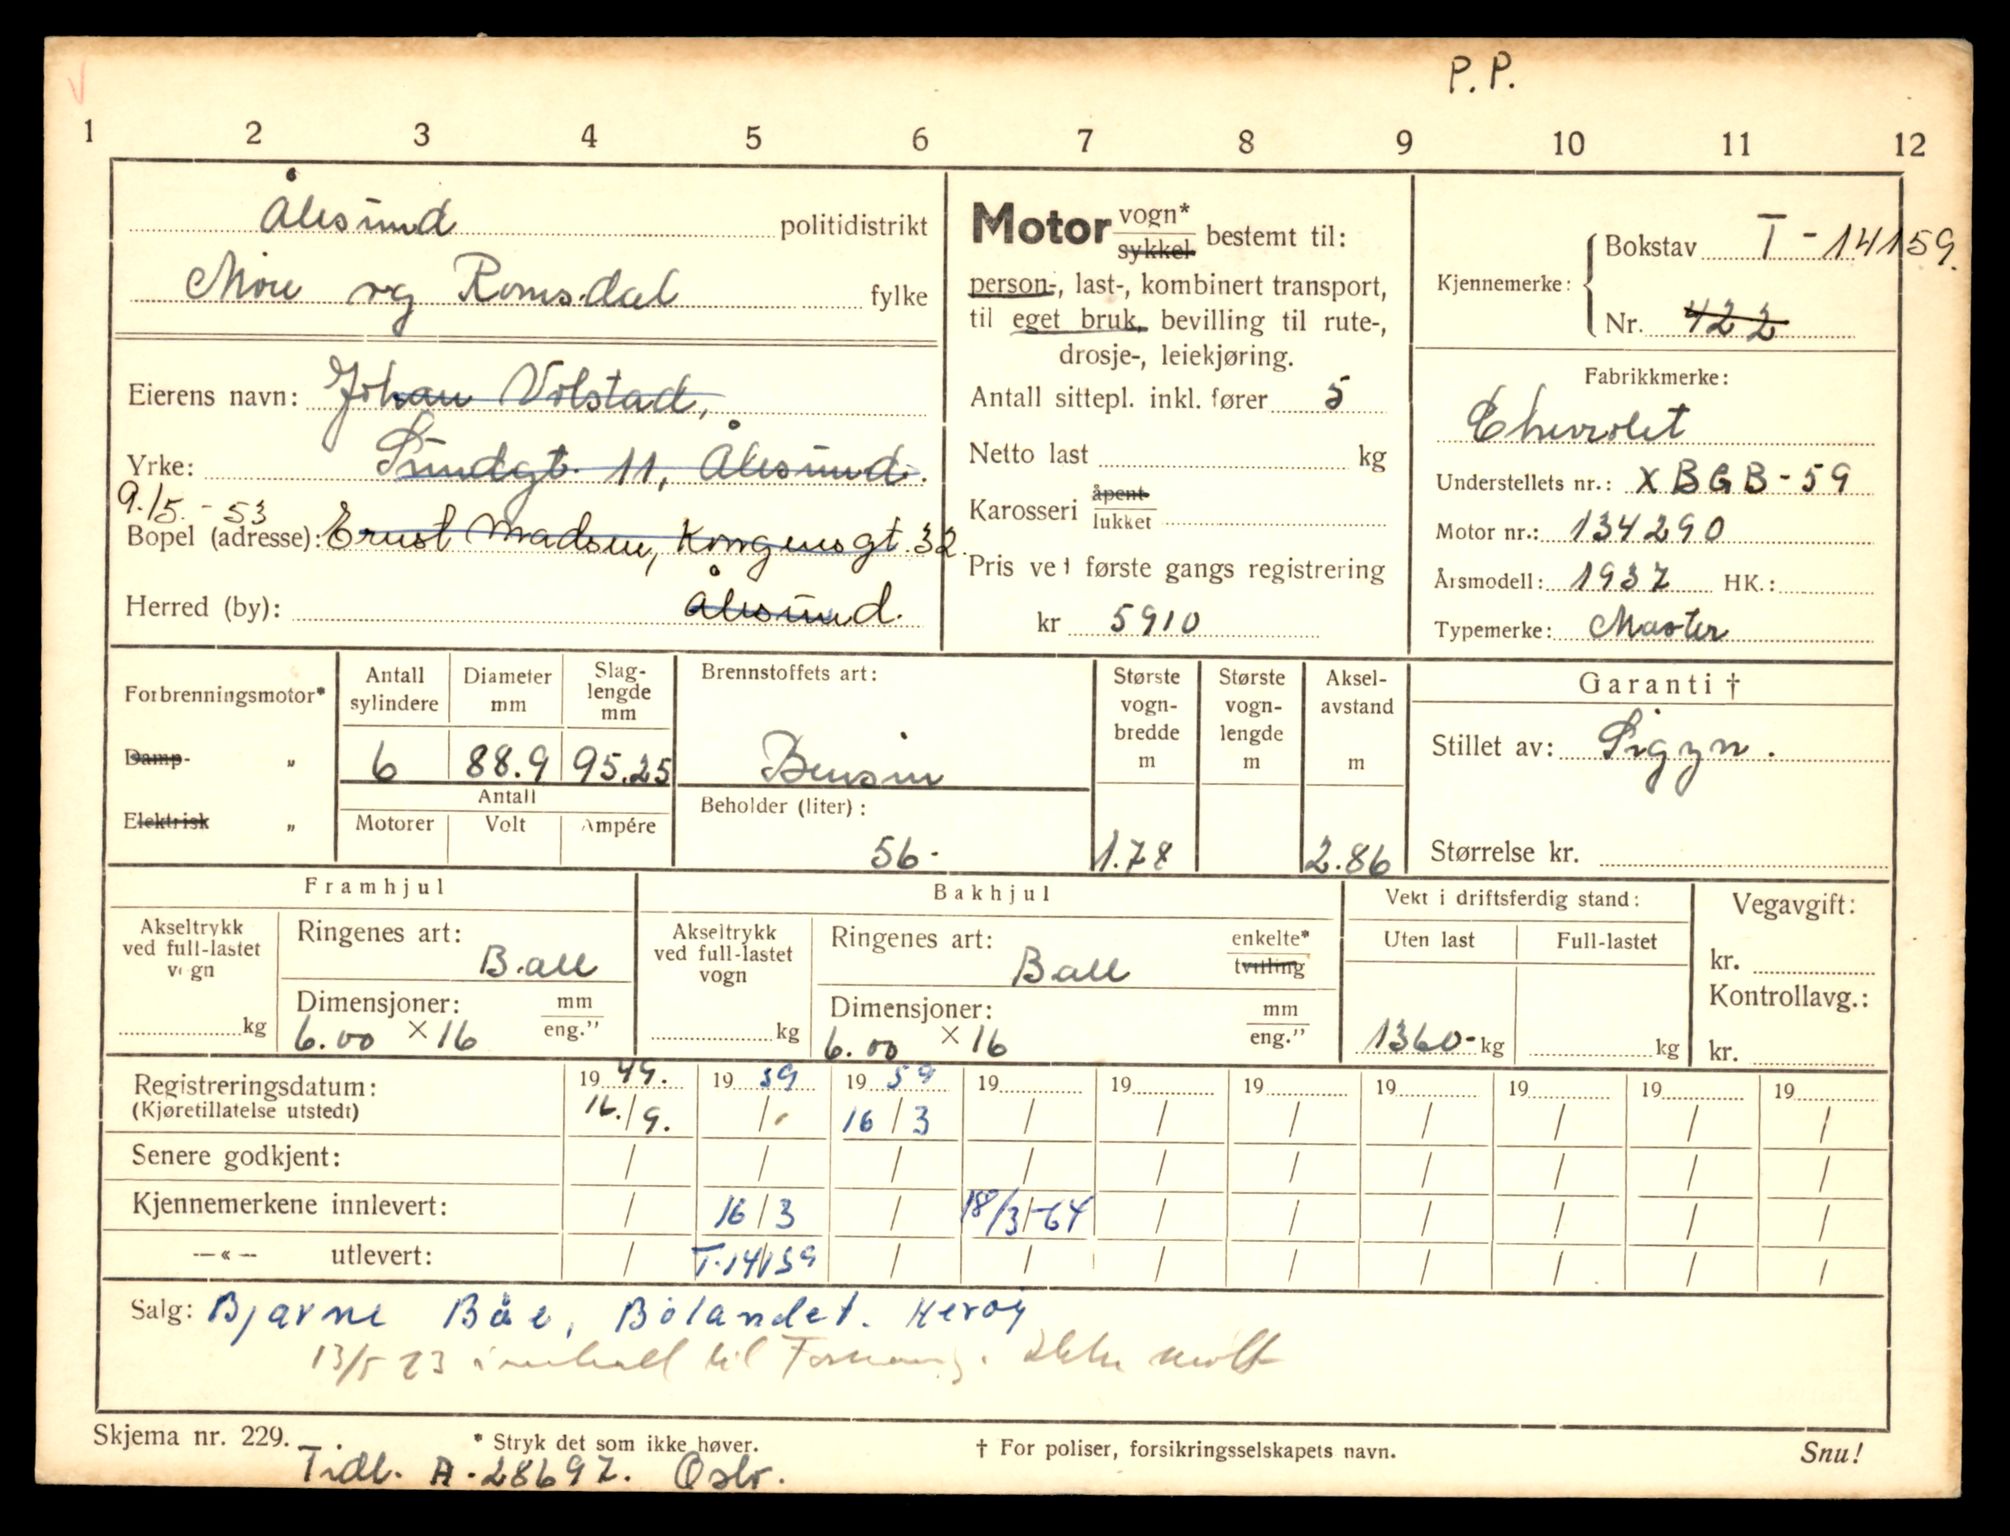 P.P.
1 2 3 4 5 6 7 8 9 10 11 12
Ålesund politidistrikt
Møre og Romsdal fylke
Eierens navn: Johan Volstad,
Yrke: Sundgt. 11, Ålesund.
9./5. - 53
Bopel (adresse): Ernst Madsen, Kongensgt. 32.
Herred (by): Ålesund.
Motor vogn* sykkel bestemt til:
person-, last-, kombinert transport,
til eget bruk, bevilling til rute-,
drosje-, leiekjøring.
Antall sittepl. inkl. fører 5
Netto last kg
Karosseri åpent lukket
Pris ved første gangs registrering
kr 5910
Kjennemerke: Bokstav T - 14159.
Nr. 422
Fabrikkmerke:
Chevrolet
Understellets nr.: XBGB-59
Motor nr.: 134290
Årsmodell: 1937 HK.:
Typemerke: Master
Forbrenningsmotor*
Damp- „
Elektrisk „
Antall sylindere
6
Diameter mm
88.9
Slag-lengde mm
95.25
Antall
Motorer Volt Ampére
Brennstoffets art:
Bensin
Beholder (liter):
56.
Største vogn-bredde m
1.78
Største vogn-lengde m
Aksel-avstand m
2.86
Garanti †
Stillet av: Sigyn.
Størrelse kr.
Framhjul
Akseltrykk ved full-lastet vogn
kg
Ringenes art:
Ball
Dimensjoner: mm eng.”
6.00 × 16
Bakhjul
Akseltrykk ved full-lastet vogn
kg
Ringenes art: enkelte* tvilling
Ball
Dimensjoner: mm eng.”
6.00 × 16
Vekt i driftsferdig stand:
Uten last Full-lastet
1360- kg kg
Vegavgift:
kr.
Kontrollavg.:
kr.
Registreringsdatum: 19 49. 19 59 19 59 19 19 19 19 19 19 19
(Kjøretillatelse utstedt) 16./9. / 16/3 / / / / / / /
Senere godkjent: / / / / / / / / / /
Kjennemerkene innlevert: / 16/3 / 18/3-64 / / / / / /
—«— utlevert: / T.14159 / / / / / / / /
Salg: Bjarne Båe, Bølandet. Herøy
13/5 23 til
Skjema nr. 229.
* Stryk det som ikke høver.
† For poliser, forsikringsselskapets navn.
Snu!
Tidl. A.28697. Oslo.